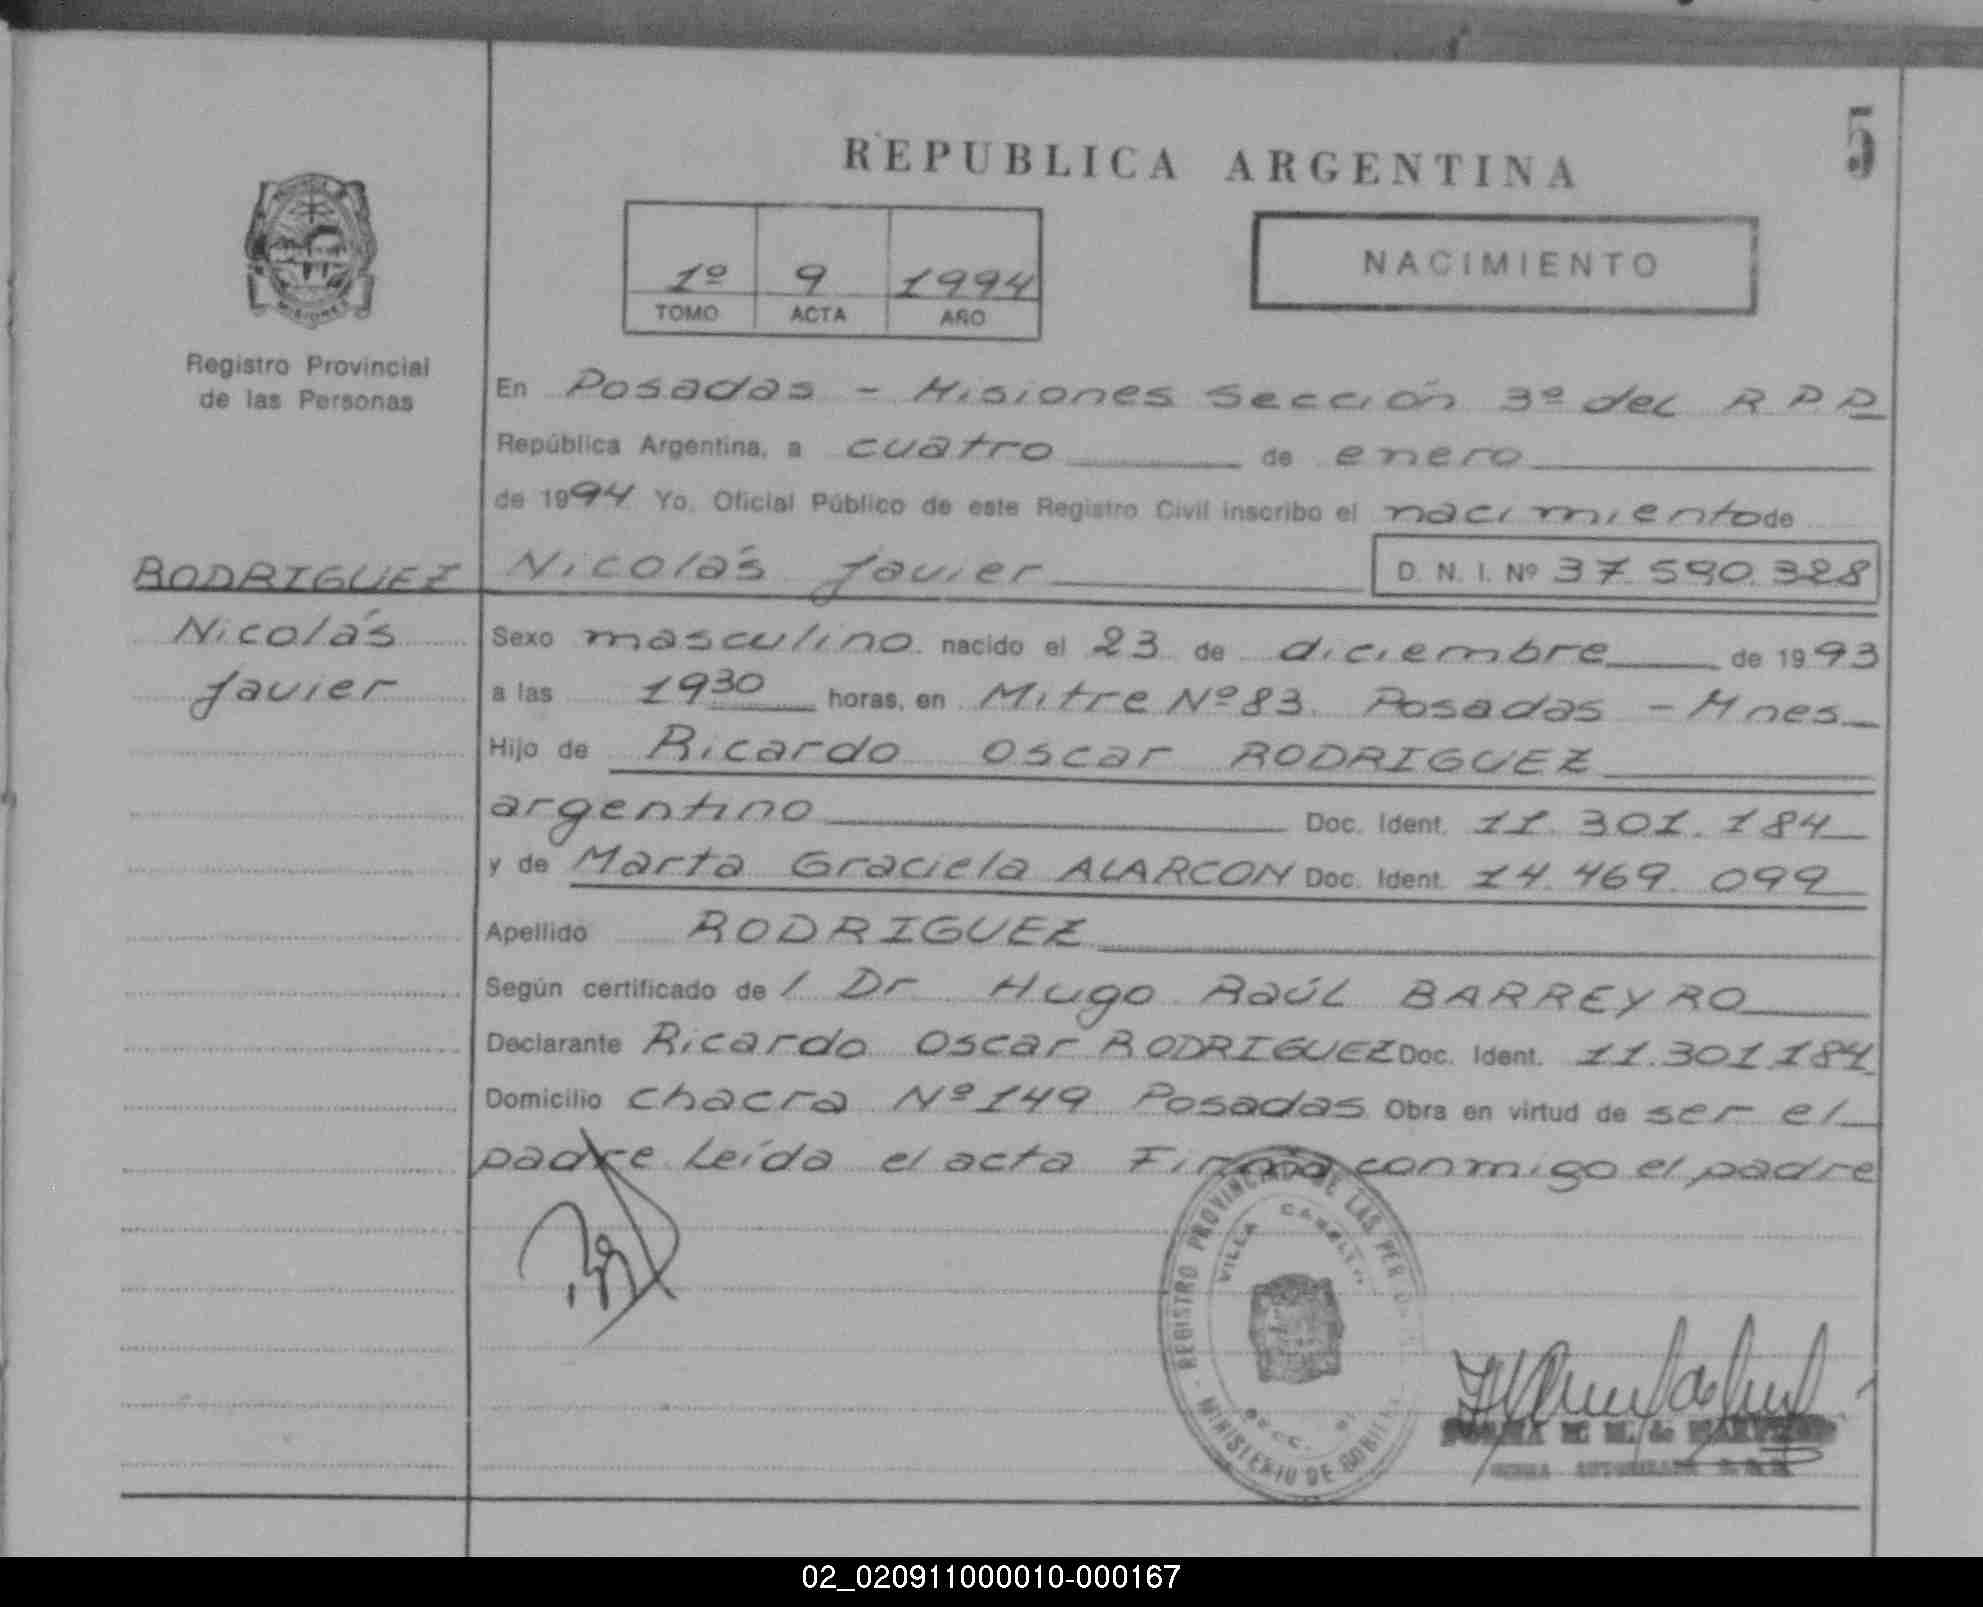 5
REPUBLICA ARGENTINA
NACIMIENTO
1º 9 1994
TOMO ACTA AÑO
MISIONES
Registro Provincial
de las Personas
En Posadas - Misiones Sección 3º del R P P
República Argentina, a cuatro de enero
de 1994 Yo, Oficial Público de este Registro Civil inscribo el nacimiento de
RODRIGUEZ Nicolás Javier D. N. I. Nº 37.590.328
Nicolás
Javier
Sexo masculino nacido el 23 de diciembre de 1993
a las 19 30 horas, en Mitre Nº 83 Posadas - Mnes
Hijo de Ricardo Oscar RODRIGUEZ
argentino Doc. Ident. 11.301.184
y de Marta Graciela ALARCON Doc. Ident. 14.469.099
Apellido RODRIGUEZ
Según certificado de / Dr Hugo Raúl BARREYRO
Declarante Ricardo Oscar RODRIGUEZ Doc. Ident. 11.301.184
Domicilio Chacra Nº 149 Posadas Obra en virtud de ser el
padre Leída el acta Firma conmigo el padre
REGISTRO PROVINCIAL DE LAS PER
VILLA CABELLO
SECC.
MINISTERIO DE GOBIE
02_020911000010-000167